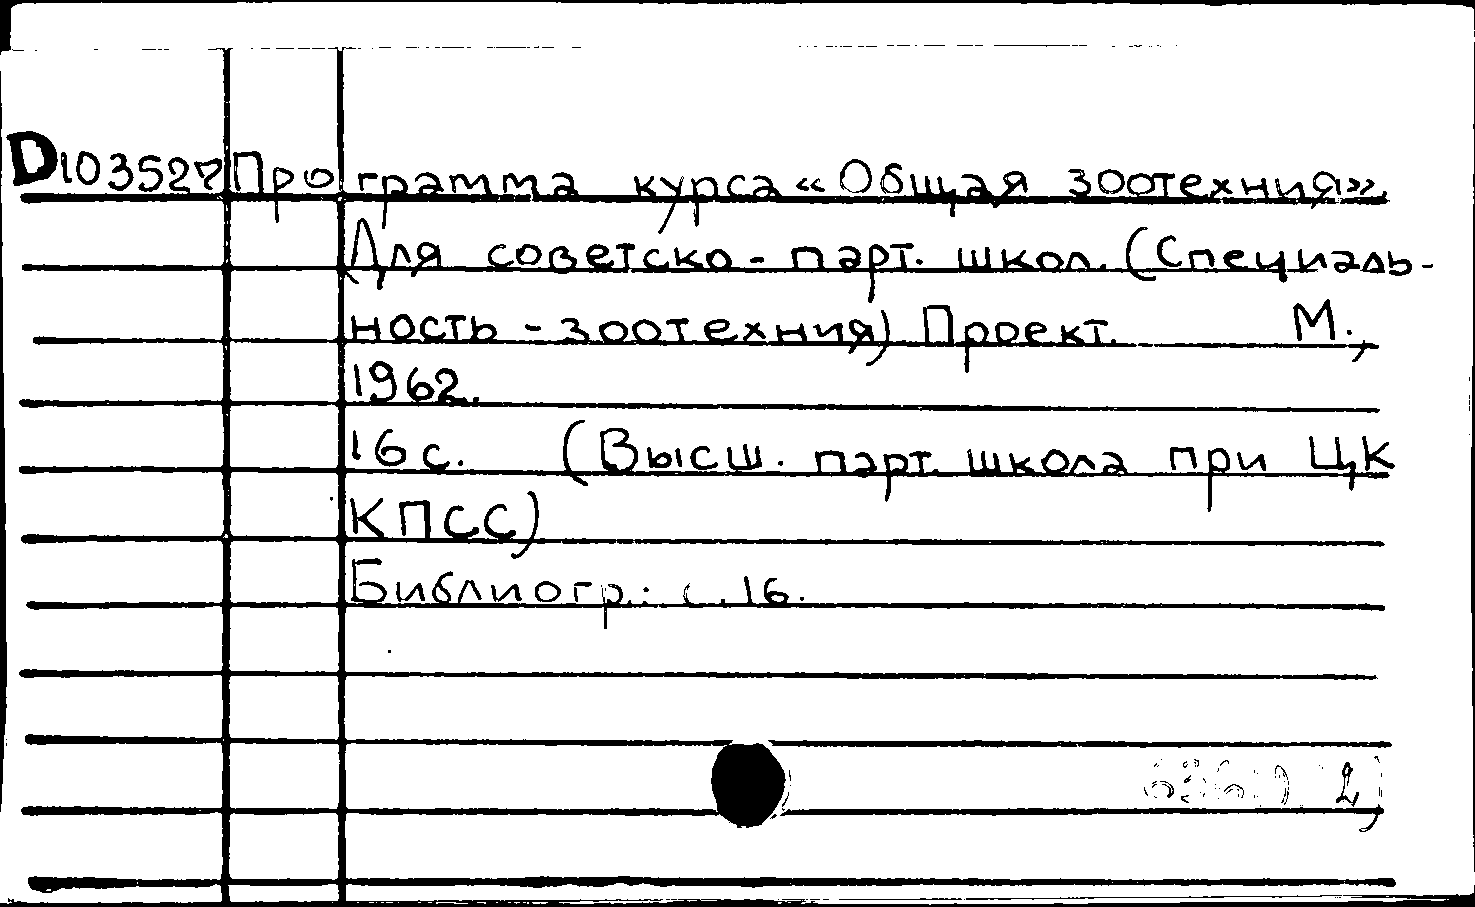 D103527 Программа курса «Общая зоотехния».
Для советско-парт. школ. (Специаль-
ность - зоотехния) Проект. М.,
1962.
16 с. (Высш. парт. школа при ЦК
КПСС)
Библиогр.: с. 16.